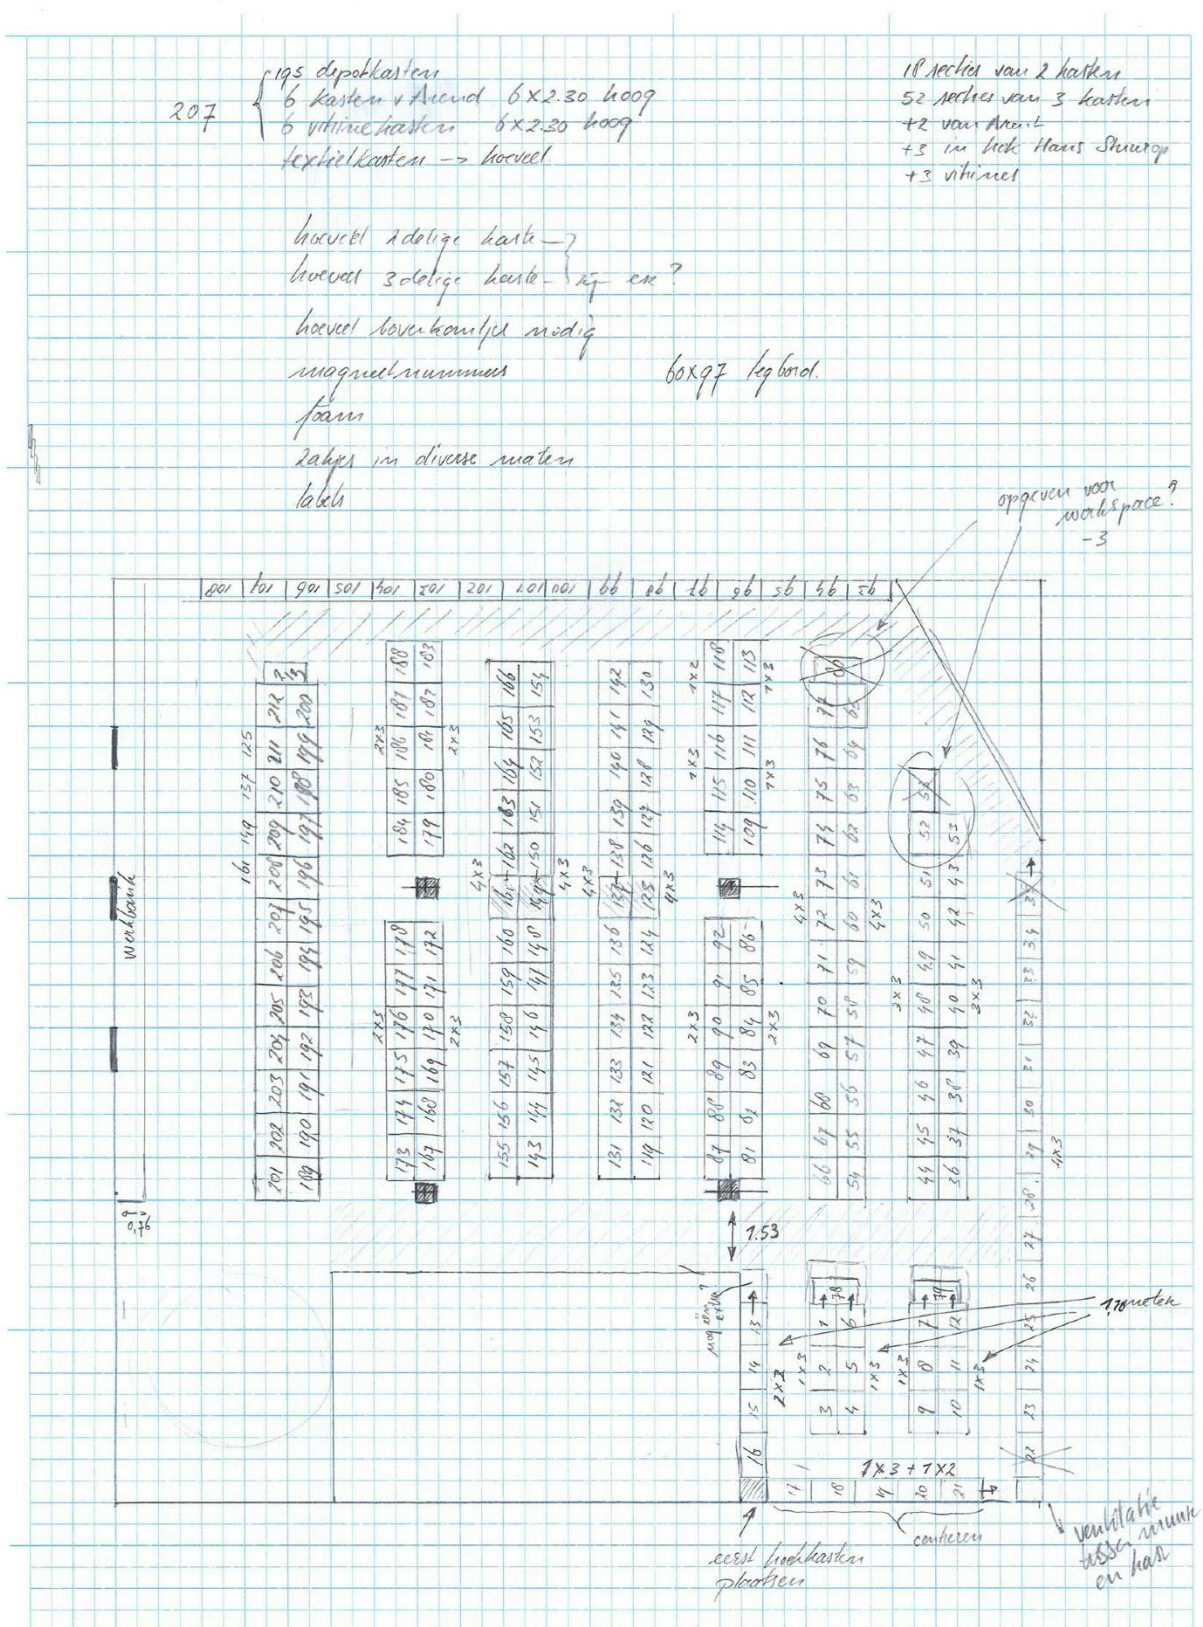 207
195 depotkasten
6 kasten v Arend 6X2.30 hoog
6 vitrinekasten 6X2.30 hoog
textielkasten -> hoeveel
18 secties van 2 kasten
52 secties van 3 kasten
+2 van Arend
+3 in hok Hans Stuurop
+3 vitrines
hoeveel 2 delige kaste
hoeveel 3 delige kaste
zijn er ?
hoeveel nodig
magneetnummers
60X97 legbord.
foam
zakjes in diverse maten
labels
opgeven voor
workspace?
-3
108 107 106 105 104 103 102 101 100 99 98 97 96 95 94 93
werkbank
0,76
161 149 137 125
201 202 203 204 205 206 207 208 209 210 211 212
189 190 191 192 193 194 195 196 197 198 199 200
184 185 186 187 188
179 180 181 182 183
2X3
2X3
173 174 175 176 177 178
167 168 169 170 171 172
2X3
2X3
155 156 157 158 159 160 161 162 163 164 165 166
143 144 145 146 147 148 149 150 151 152 153 154
4X3
4X3
131 132 133 134 135 136 137 138 139 140 141 142
119 120 121 122 123 124 125 126 127 128 129 130
4X3
4X3
114 115 116 117 118
109 110 111 112 113
1X3
1X2
1X3
1X3
87 88 89 90 91 92
81 82 83 84 85 86
2X3
2X3
66 67 68 69 70 71 72 73 74 75 76 77
54 55 56 57 58 59 60 61 62 63 64 65
80
4X3
4X3
44 45 46 47 48 49 50 51 52
36 37 38 39 40 41 42 43 53
3X3
3X3
22 23 24 25 26 27 28 29 30 31 32 33 34
4X3
1.53
nog één extra?
16 15 14 13
2X2
3 2 1
4 5 6
78
1X3
1X3
9 8 7
10 11 12
79
1X3
1X3
1,10 meter
1X3 + 1X2
17 18 19 20 21
centreren
eerst hoekkasten
plaatsen
ventilatie
tussen muur
en kast